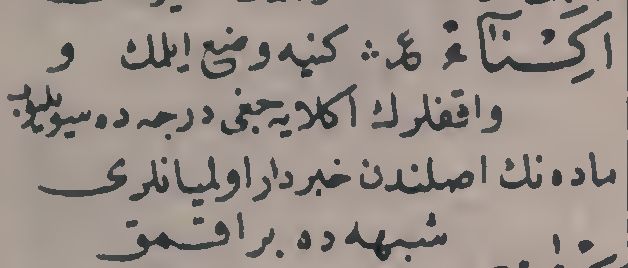 اِكْتِنَآء ة ع؞ كنيه وضع ايلمك و
واقفلرك اكلايه جغى درجه ده سويليوب
ماده نك اصلندن خبردار اولميانلرى
شبهه ده براقمق